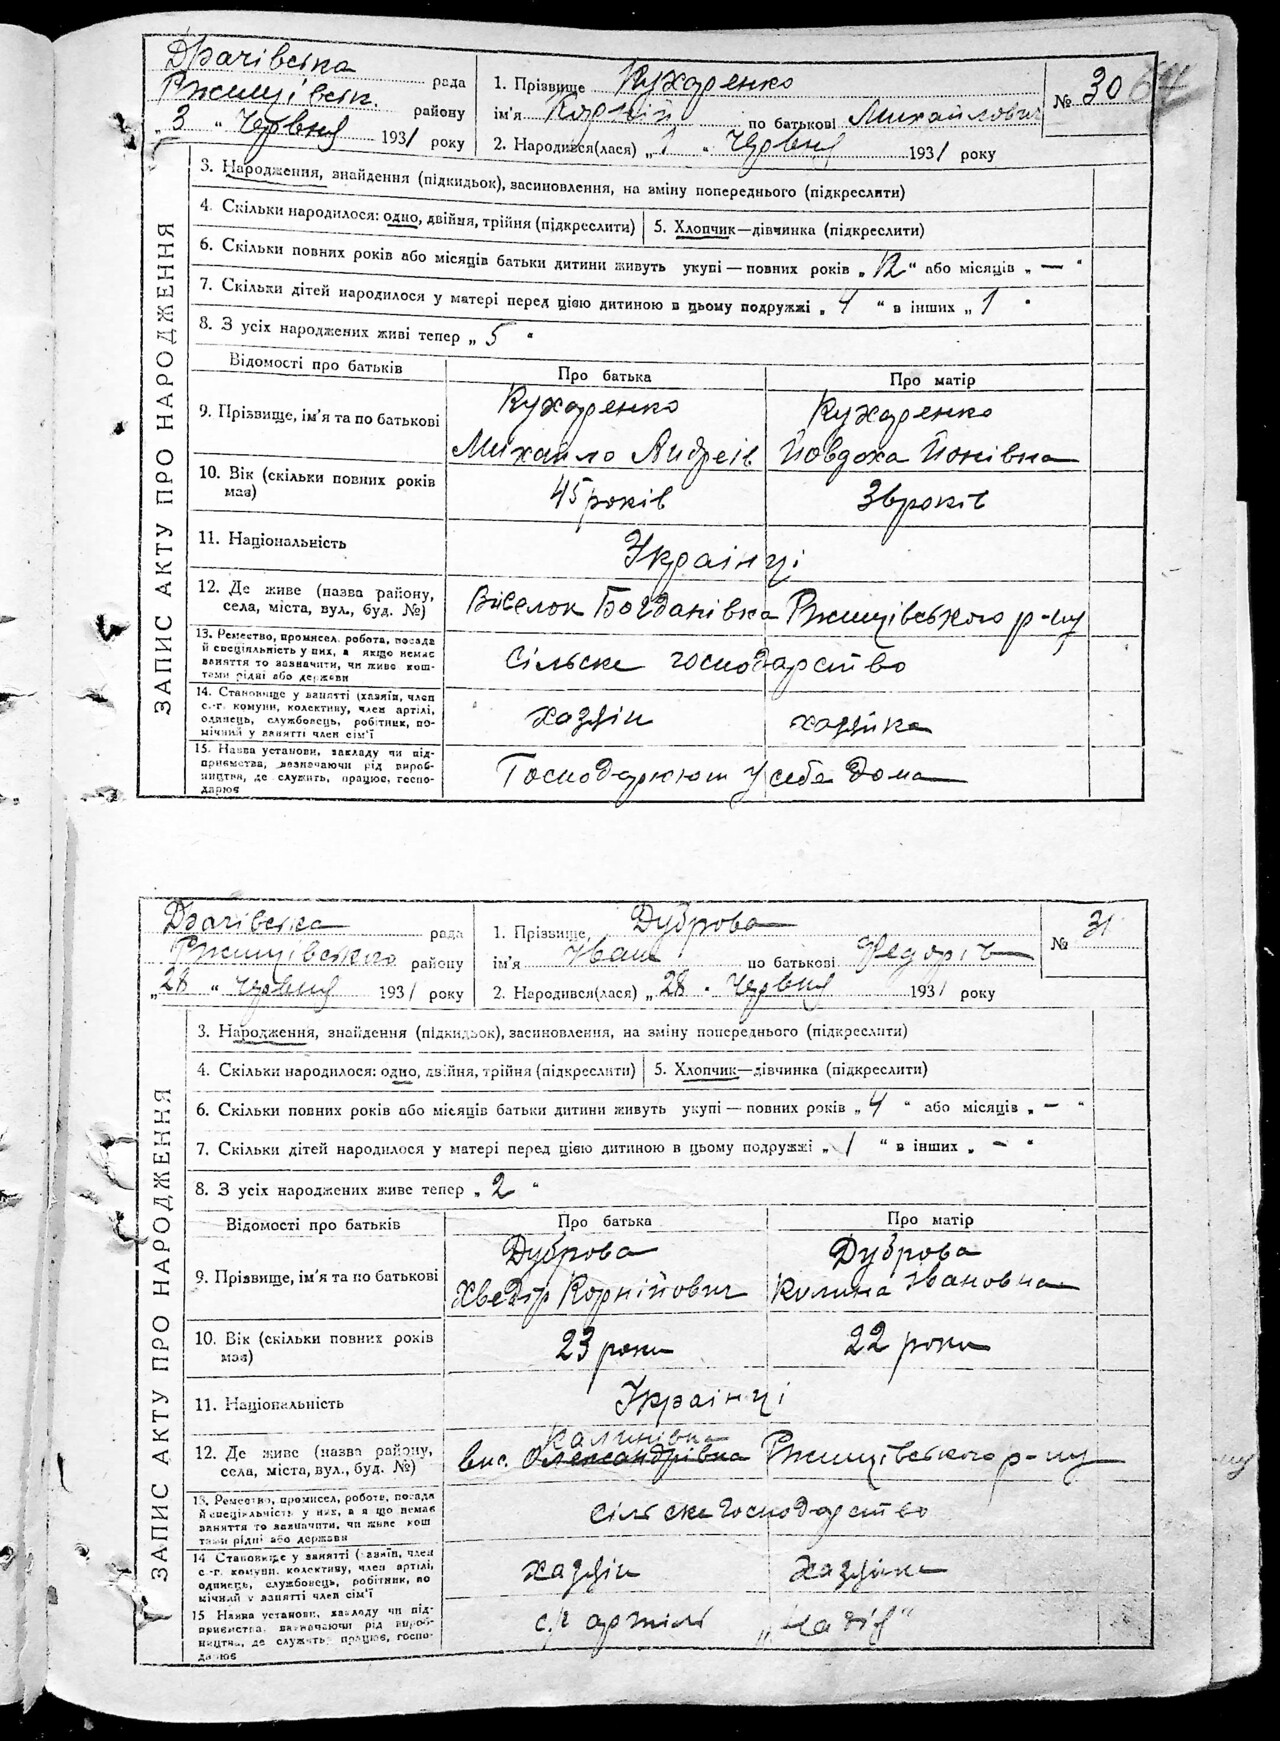 Драчівська рада
Ржищівськ. району
„3“ Червня 1931 року
1. Прізвище Кухаренко
ім'я Корній по батькові Михайлович
2. Народився(лася) „1“ Червня 1931 року
№ 30
ЗАПИС АКТУ ПРО НАРОДЖЕННЯ
3. Народження, знайдення (підкидьок), засиновлення, на зміну попереднього (підкреслити)
4. Скільки народилося: одно, двійня, трійня (підкреслити) 5. Хлопчик—дівчинка (підкреслити)
6. Скільки повних років або місяців батьки дитини живуть укупі — повних років „12“ або місяців „—“
7. Скільки дітей народилося у матері перед цією дитиною в цьому подружжі „4“ в інших „1“
8. З усіх народжених живі тепер „5“
Відомості про батьків Про батька Про матір
9. Прізвище, ім'я та по батькові
Кухаренко Кухаренко
Михайло Андреїв Йовдоха Йонівна
10. Вік (скільки повних років
має)
45 років 36 років
11. Національність Українці
12. Де живе (назва району,
села, міста, вул., буд. №)
Виселок Богданівка Ржищівського р-ну
13. Ремество, промисел, робота, посада
й спеціяльність у них, а якщо немає
заняття то зазначити, чи живе кош-
тами рідні або держави
Сільське господарство
14. Становище у занятті (хазяїн, член
с.-г. комуни, колективу, член артілі,
одинець, службовець, робітник, по-
мічний у занятті член сім'ї
хазяїн хазяйка
15. Назва установи, закладу чи під-
приємства, зазначаючи рід вироб-
ництва, де служить, працює, госпо-
дарює
Господарюют у себе дома
Драчівська рада
Ржищівського району
„28“ Червня 1931 року
1. Прізвище Дуброва
ім'я Іван по батькові Федоріч
2. Народився(лася) „28“ Червня 1931 року
№ 31
ЗАПИС АКТУ ПРО НАРОДЖЕННЯ
3. Народження, знайдення (підкидьок), засиновлення, на зміну попереднього (підкреслити)
4. Скільки народилося: одно, двійня, трійня (підкреслити) 5. Хлопчик—дівчинка (підкреслити)
6. Скільки повних років або місяців батьки дитини живуть укупі — повних років „4“ або місяців „—“
7. Скільки дітей народилося у матері перед цією дитиною в цьому подружжі „1“ в інших „—“
8. З усіх народжених живе тепер „2“
Відомості про батьків Про батька Про матір
9. Прізвище, ім'я та по батькові
Дуброва Дуброва
Хведір Корнійович Килина Івановна
10. Вік (скільки повних років
має)
23 роки 22 роки
11. Національність Українці
12. Де живе (назва району,
села, міста, вул., буд. №)
Калинівна
вис. Олександрівна Ржищівського р-ну
13. Ремество, промисел, робота, посада
й спеціяльність у них, а якщо немає
заняття то зазначити, чи живе кош
тами рідні або держави
Сільске господарство
14 Становище у занятті (хазяїн, член
с -г. комуни, колективу, член артілі,
одинець, службовець, робітник, по
мічний у занятті член сім'ї
хазяїн хазяйка
15 Назва установи, закладу чи під-
приємства, зазначаючи рід вироб-
ництва, де служить, працює, госпо-
дарює
с/г артілі „Надія“